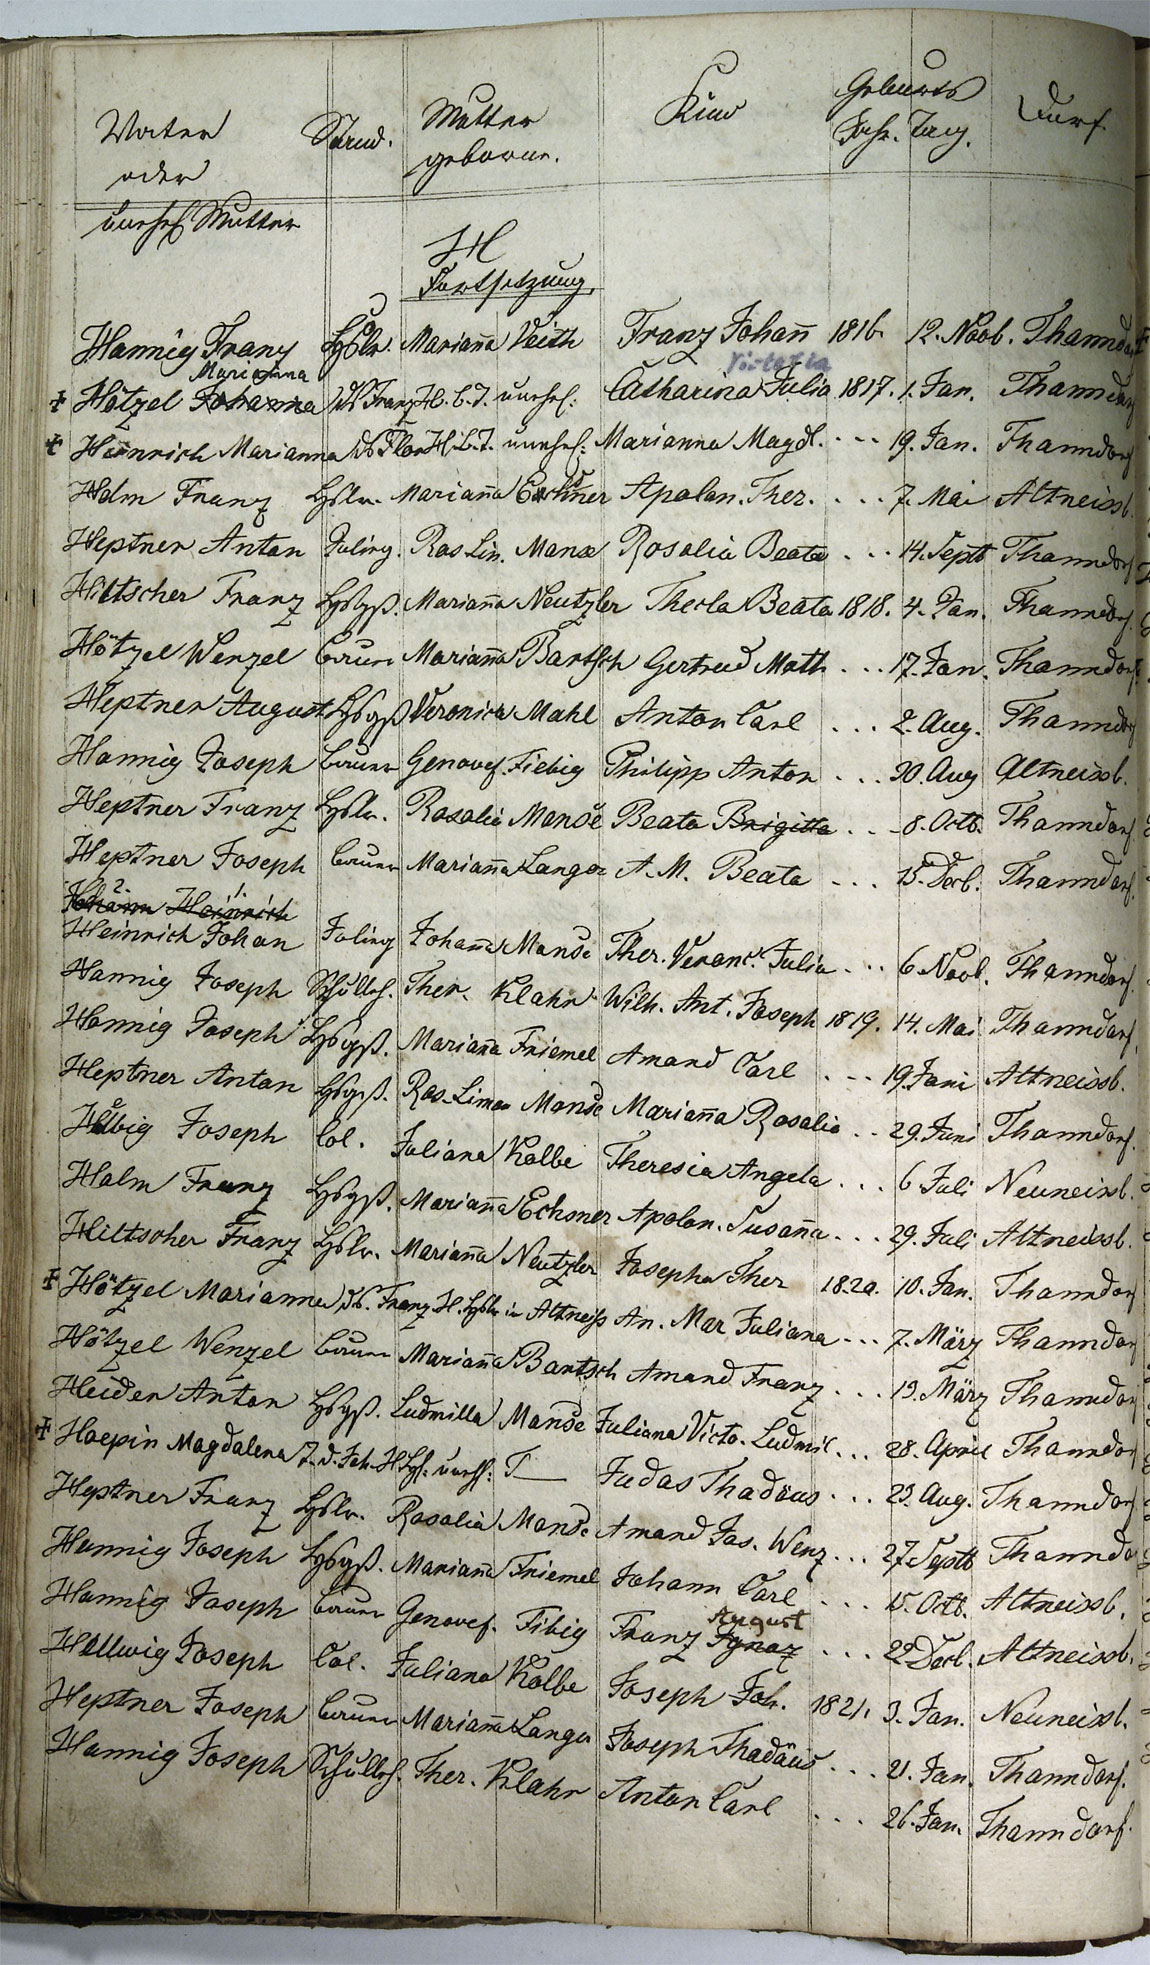 Vater Stand. Mutter Kind Geburts Dorf.
oder geborne. Jahr. Tag.
unehel Mutter
H
Fortsetzung.
Hannig Franz Hslr. Mariana Veith Franz Johan 1816. 12. Novb. Thanndorf
Marianna Victoria
Hötzel Johanna d. Franz H. unehel: Catharina Julia 1817. 1. Jan. Thanndorf
Heinrich Marianna d. Flor H. unehel: Marianna Magdl. - - - 19. Jan. Thanndorf
Halm Franz Hslr. Mariana Echsner Apolon. Ther. . . . 7. Mai Altneissb.
Heptner Anton Inlieg. Ros Lin. Manse Rosalia Beata . . . 14. Septb Thanndorf
Hiltscher Franz Hsbgß. Mariana Neutzler Thecla Beata 1818. 4. Jan. Thanndorf.
Hötzel Wenzel bauer Mariana Bartsch Gertrud Math . . . 17. Jan. Thanndorf
Heptner August Hsbgß Veronica Mahl Anton Carl . . . 2. Aug. Thanndorf
Hannig Joseph bauer Genovef. Fiebig Philipp Anton . . . 30. Aug Altneissb.
Heptner Franz Hslr. Rosalia Manse Beata Brigitta . . . 8. Octb. Thanndorf.
Heptner Joseph bauer Mariana Langer A. M. Beata . . . 15. Decb. Thanndorf.
2. 1.
Johann Heinrich
Heinrich Johan Inlieg Johana Manse Ther. Veronc. Julia . . . 6. Novb. Thanndorf.
Hannig Joseph Schullh. Ther. Klahr Wilh. Ant. Joseph 1819. 14. Mai Thanndorf.
Hannig Joseph Hsbgß. Mariana Friemel Amand Carl . - - 19. Juni Altneissb.
Heptner Anton Hsbgß. Ros. Liman Manse Mariana Rosalia . . 29. Juni Thanndorf.
Helbig Joseph Col. Juliana Kolbe Theresia Angela . . . 6 Juli Neuneissb.
Halm Franz Hsbgß. Mariana Echsner Apolon. Susana . . . 29. Juli Altneissb.
Hiltscher Franz Hslr. Mariana Neutzler Josepha Ther 1820. 10. Jan. Thanndorf
Hötzel Marianna d. Franz H. Hslr in Altneiss An. Mar Juliana . . . 7. März Thanndorf
Hötzel Wenzel bauer Mariana Bartsch Amand Franz . . . 13. März Thanndorf
Heider Anton Hsbgß. Ludmilla Manse Juliana Victo. Ludmil . . . 28. April Thanndorf
Hoepin Magdalena T. d. Joh. H Hsl. unehl. T— Judas Thadäus . . . 23. Aug. Thanndorf
Heptner Franz Hslr. Rosalia Manse Amand Jos. Wenz . . . 27. Septb Thanndorf
Hannig Joseph Hsbgß. Mariana Friemel Johann Carl . . . 15. Octb. Altneissb.
August
Hannig Joseph bauer Genovef. Fibig Franz Ignaz . . . 22 Decb. Altneissb.
Hellwig Joseph Col. Juliana Kolbe Joseph Joh. 1821. 3. Jan. Neuneissb.
Heptner Joseph bauer Mariana Langer Joseph Thadäus . . . 21. Jan. Thanndorf.
Hannig Joseph Schullh. Ther. Klahr Anton Carl . . . 26. Jan. Thanndorf.